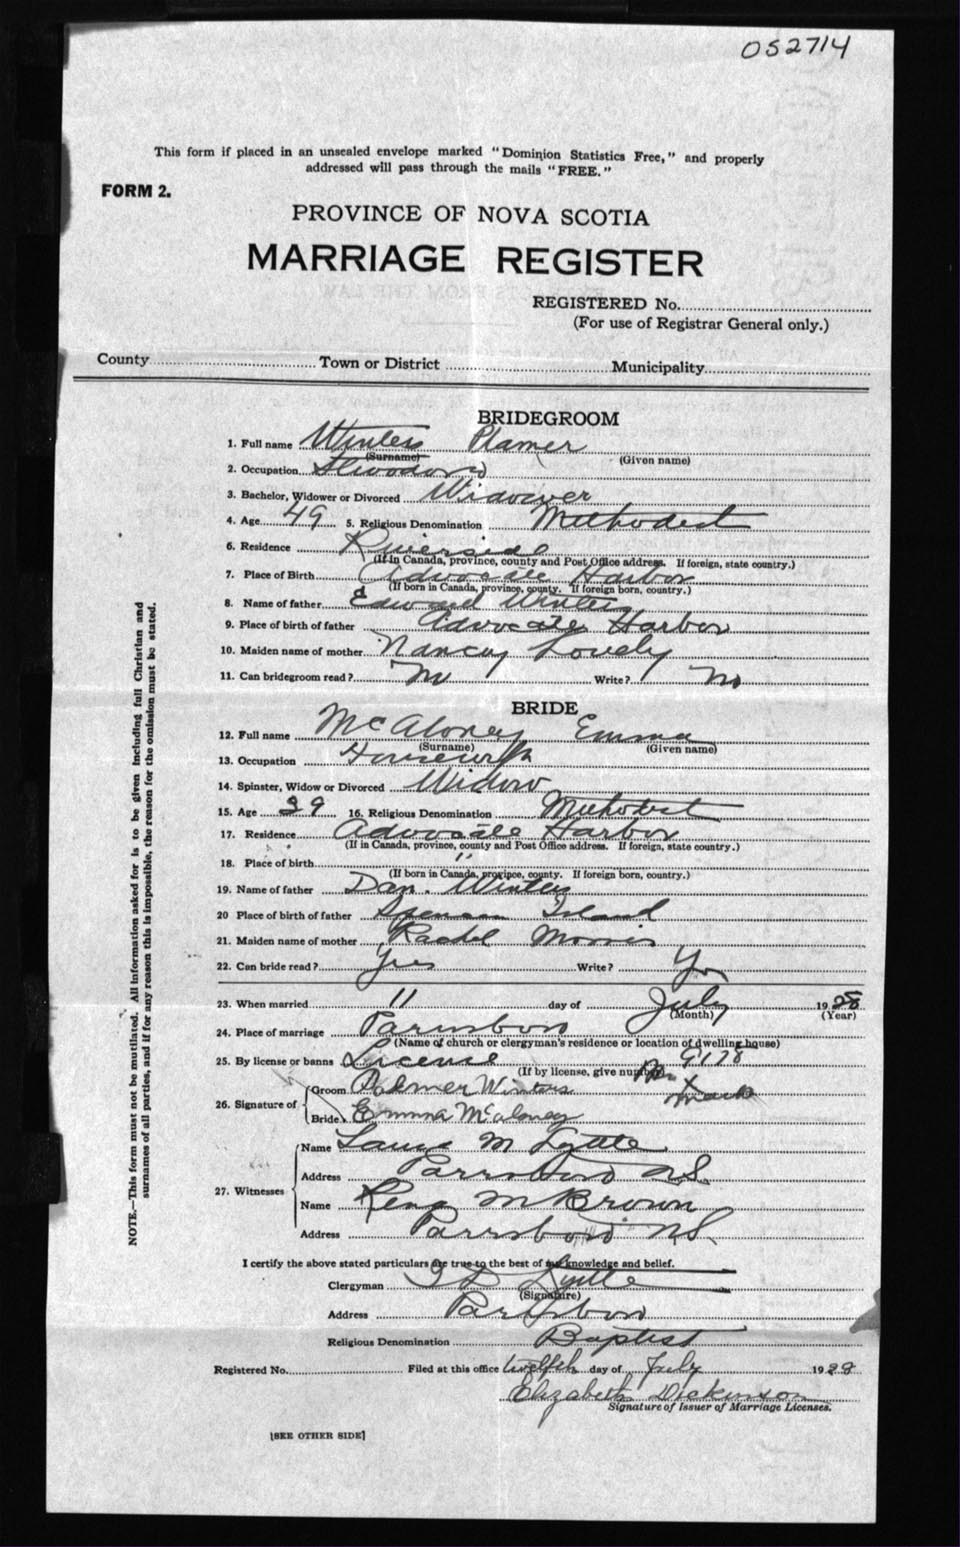 052714
This form if placed in an unsealed envelope marked "Dominion Statistics Free," and properly
addressed will pass through the mails "FREE."
FORM 2.
PROVINCE OF NOVA SCOTIA
MARRIAGE REGISTER
REGISTERED No.
(For use of Registrar General only.)
County Town or District Municipality
BRIDEGROOM
1. Full name Winters Plamer
(Surname) (Given name)
2. Occupation
3. Bachelor, Widower or Divorced Widower
4. Age 49 5. Religious Denomination Methodist
6. Residence Riverside
(If in Canada, province, county and Post Office address. If foreign, state country.)
7. Place of Birth Advocate Harbor
(If born in Canada, province, county. If foreign born, country.)
8. Name of father Edward Winters
9. Place of birth of father Advocate Harbor
10. Maiden name of mother Nancy Lovely
11. Can bridegroom read? No Write? No
BRIDE
12. Full name McAloney Emma
(Surname) (Given name)
13. Occupation Housewife
14. Spinster, Widow or Divorced Widow
15. Age 39 16. Religious Denomination Methodist
17. Residence Advocate Harbor
(If in Canada, province, county and Post Office address. If foreign, state country.)
18. Place of birth "
(If born in Canada, province, county. If foreign born, country.)
19. Name of father Dan. Winters
20 Place of birth of father Spencers Island
21. Maiden name of mother Rachel Morris
22. Can bride read? Yes Write? Yes
23. When married 11 day of July 1928
(Month) (Year)
24. Place of marriage Parrsboro
(Name of church or clergyman's residence or location of dwelling house)
25. By license or banns License 9178
(If by license, give number)
26. Signature of Groom Palmer Winters his X mark
Bride Emma McAloney
27. Witnesses Name Laura M Lyttle
Address Parrsboro N.S.
Name Rena M Brown
Address Parrsboro N.S.
I certify the above stated particulars are true to the best of my knowledge and belief.
Clergyman Lyttle
(Signature)
Address Parrsboro
Religious Denomination Baptist
Registered No. Filed at this office twelfth day of July 1928
Elizabeth Dickinson
Signature of Issuer of Marriage Licenses.
[SEE OTHER SIDE]
NOTE.—This form must not be mutilated. All information asked for is to be given including full Christian and
surnames of all parties, and if for any reason this is impossible, the reason for the omission must be stated.